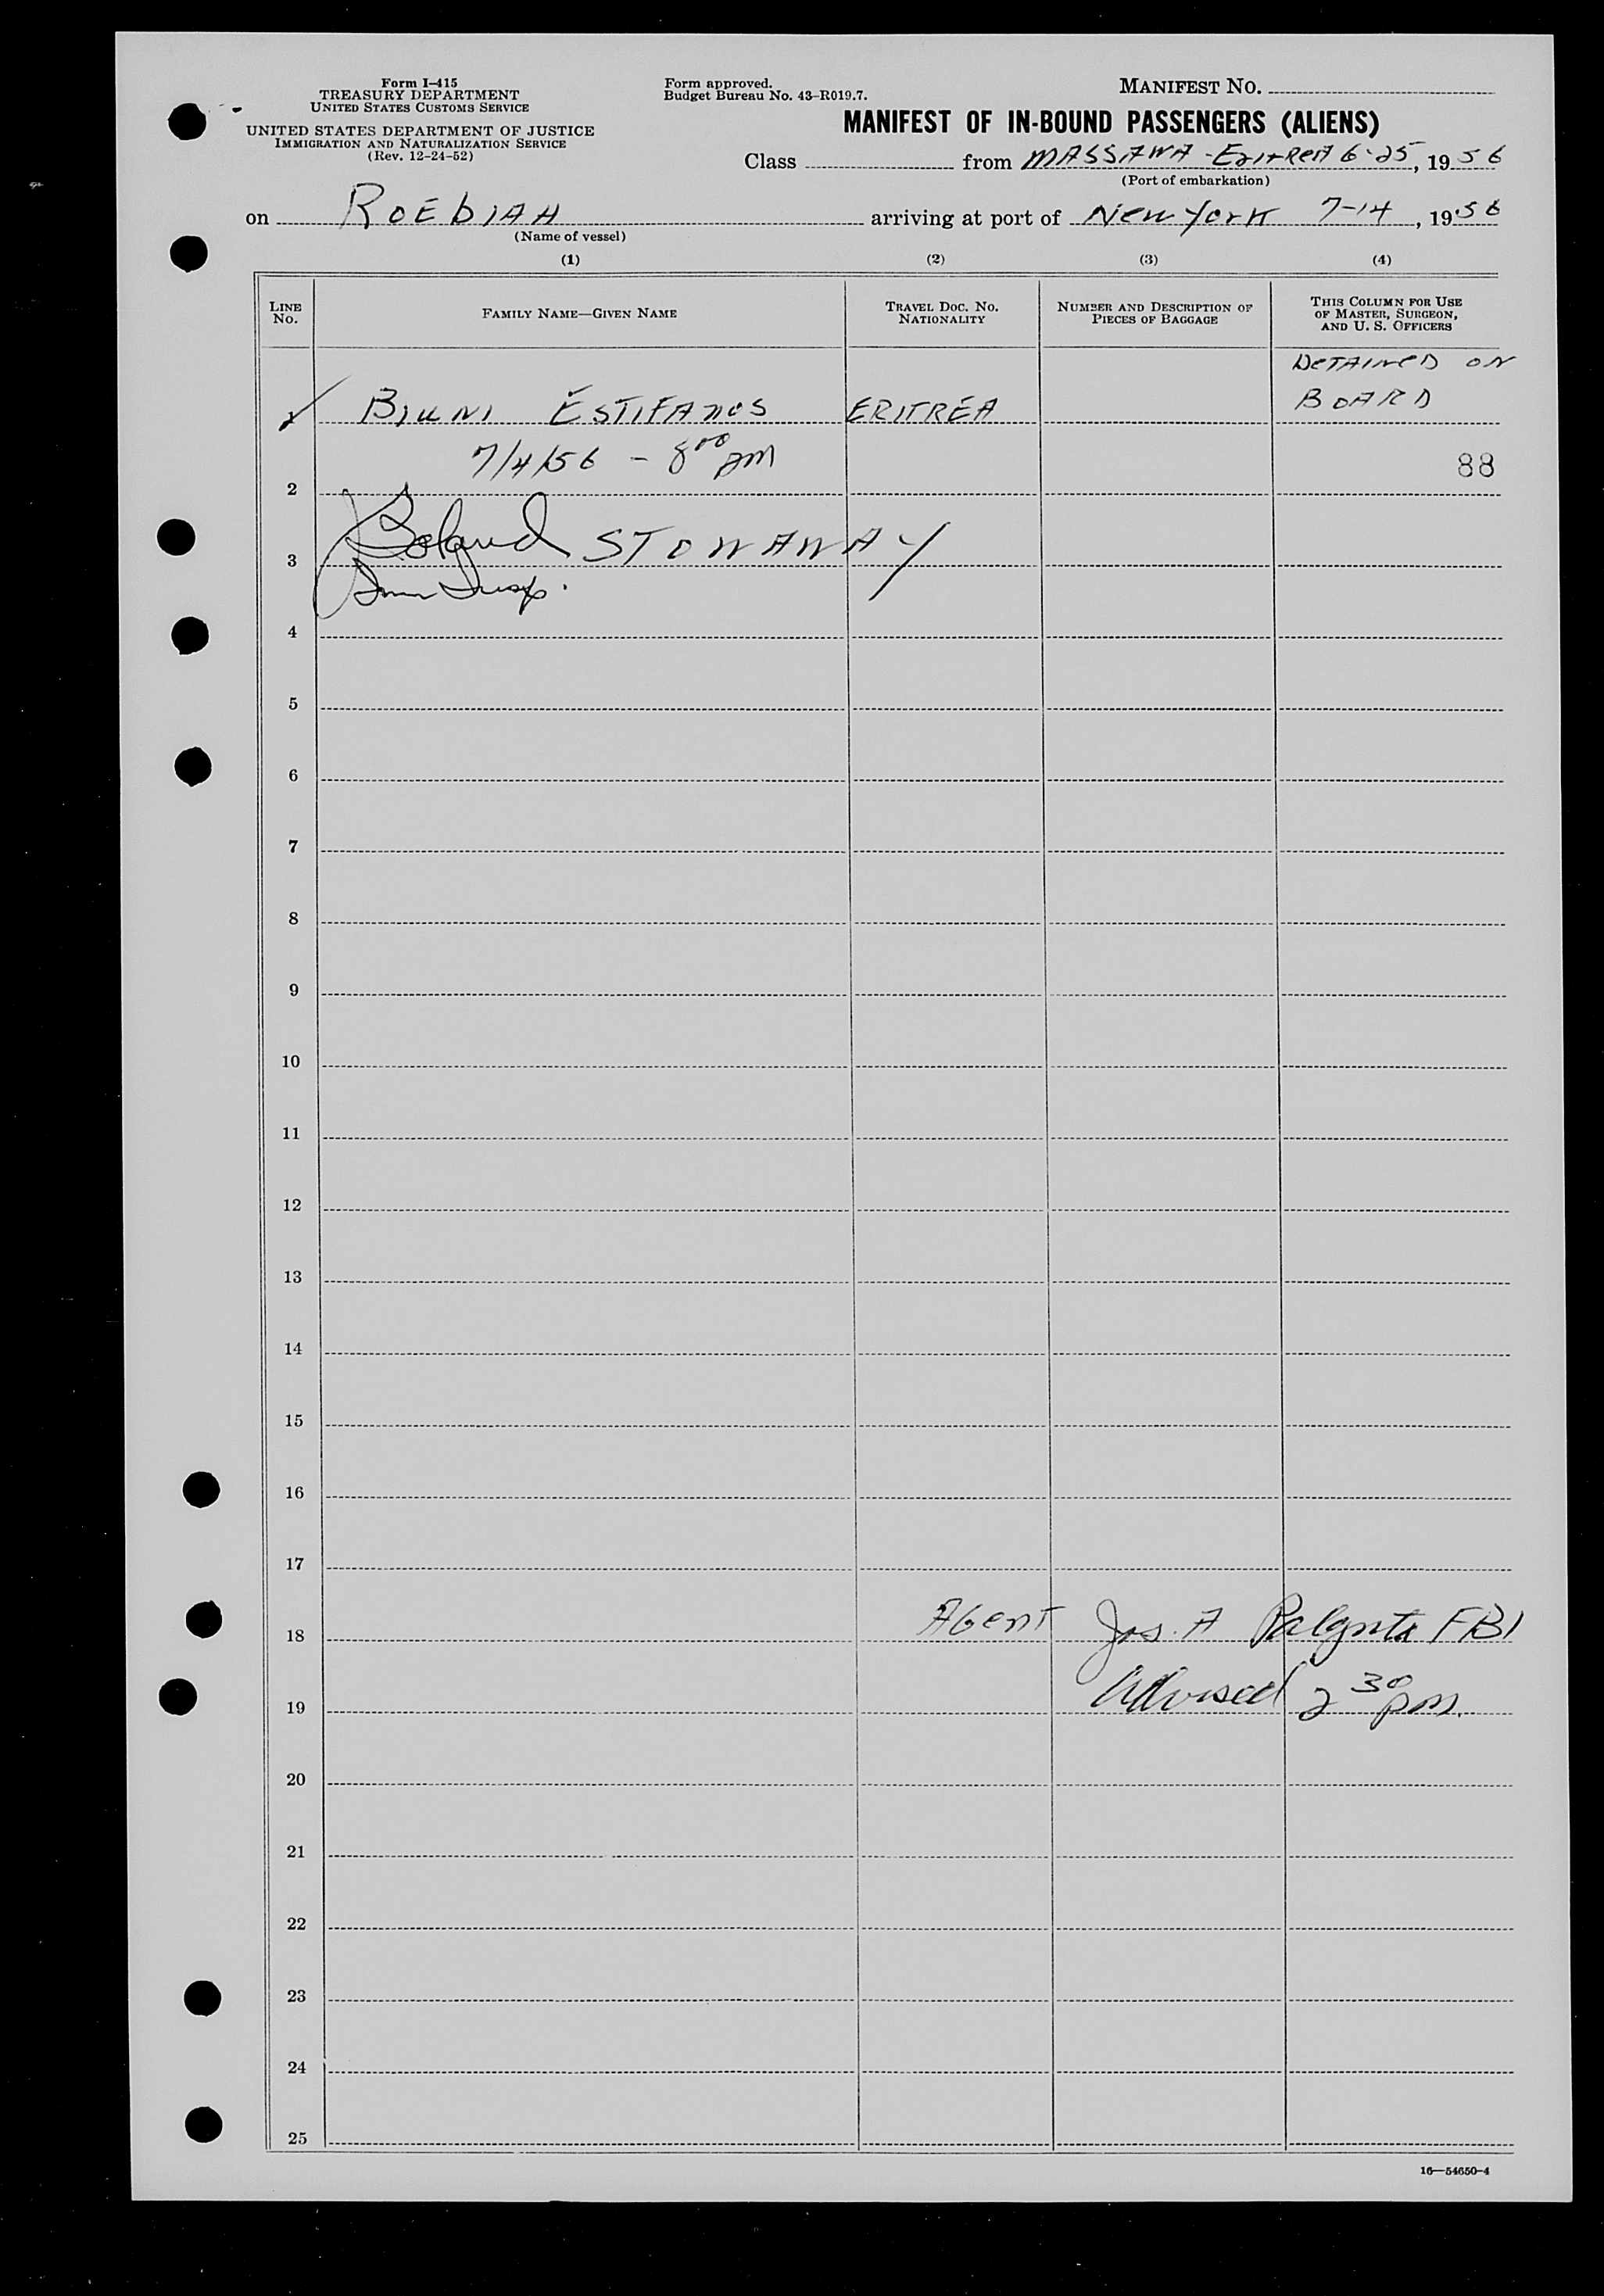 Form I-415
TREASURY DEPARTMENT
UNITED STATES CUSTOMS SERVICE
UNITED STATES DEPARTMENT OF JUSTICE
IMMIGRATION AND NATURALIZATION SERVICE
(Rev. 12-24-52)
Form approved.
Budget Bureau No. 43-R019.7.
MANIFEST NO.
MANIFEST OF IN-BOUND PASSENGERS (ALIENS)
Class from MASSAWA - EritReA 6-25, 1956
(Port of embarkation)
on ROEBIAH arriving at port of New York 7-14, 1956
(Name of vessel)
(1) (2) (3) (4)
LINE NO. FAMILY NAME—GIVEN NAME TRAVEL DOC. NO. NATIONALITY NUMBER AND DESCRIPTION OF PIECES OF BAGGAGE THIS COLUMN FOR USE OF MASTER, SURGEON, AND U. S. OFFICERS
DETAINED ON
BOARD
BIUNI ESTIFANOS ERITREA
7/4/56 - 8 00 pm 88
2
Boland STOWAWAY
3
Imm Insp.
4
5
6
7
8
9
10
11
12
13
14
15
16
17
18 AGENT Jos. A FBI
19 Advised 2 30 pm.
20
21
22
23
24
25
16—54650-4